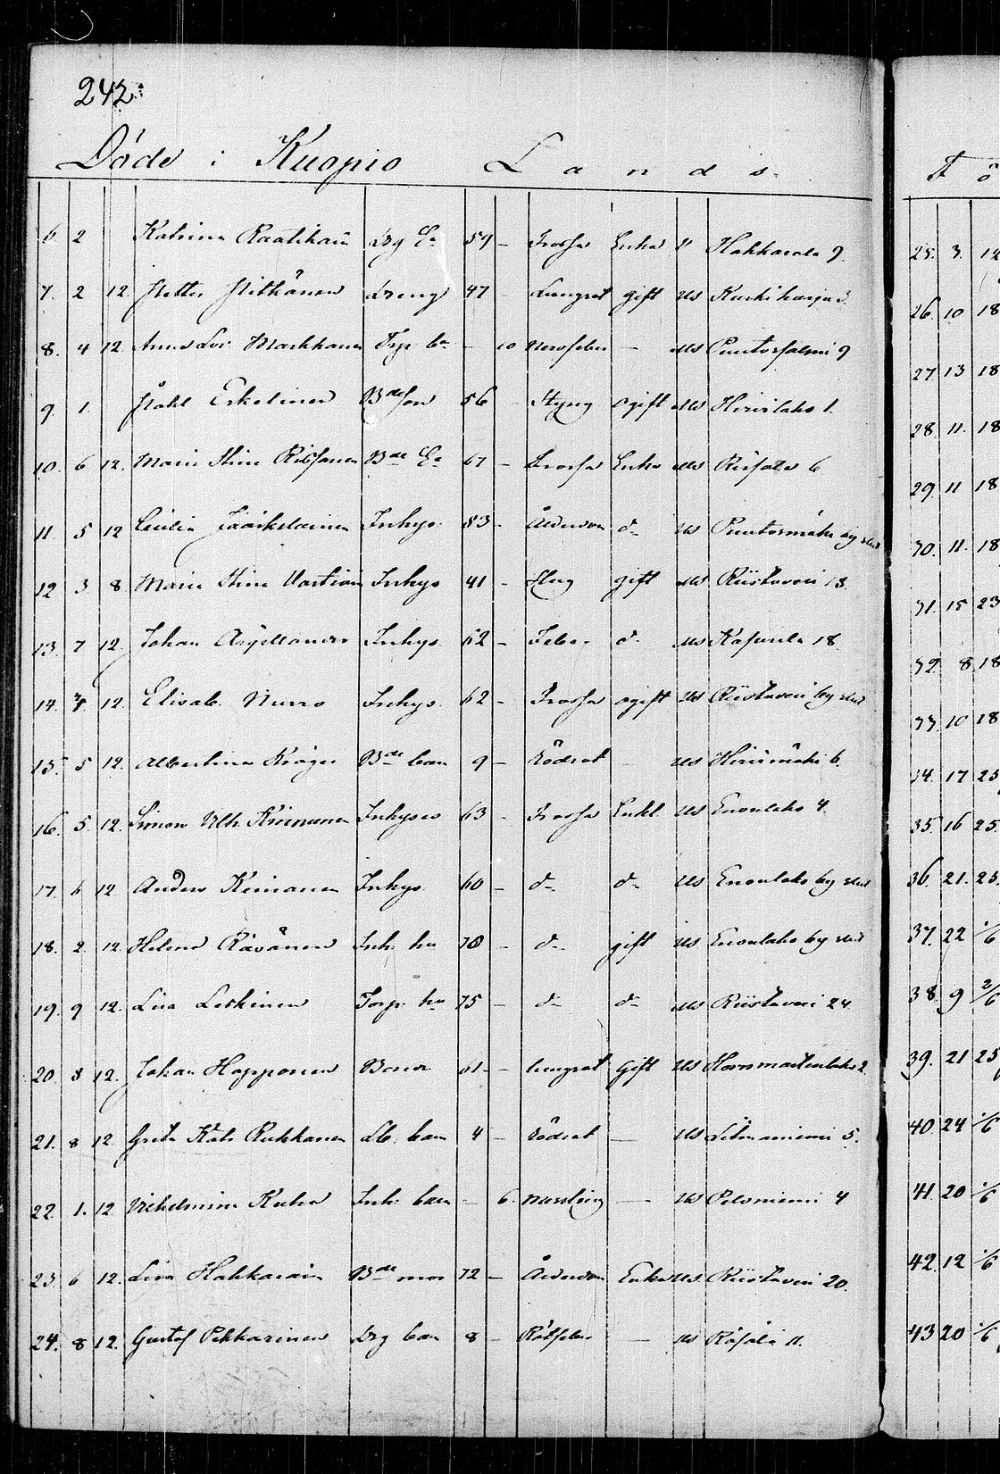 242.
Döde i Kuopio Lands-
6. 2 Katrina Raatikain Drg E. 59 - Frossa Enka Hakkarala 9.
7. 2 12. Petter Pitkänen Dreng 47 Lungsot gift us Kurkiharju
8. 4 12. Anna Lov Markkanen Torp bn - 10 Nervfeber - us Puutosalmi 9
9. 1. Påhl Eskelinen Bde son 56 Styng ogift us Hirvilaks 1.
10. 6 12. Maria Stina Rissanen Bde E. 67 - Frossa Enka us Räsälä 6
11 5 12 Cecilia Jääskeläinen Inhys. 83 - Ålderdom do us Puutosmäki by
12 3 8. Maria Stina Vartiain Inhys 41 - Håg gift us Riistavesi 13.
13. 7 12. Johan Inhys 62 - Feber do us Käpanla 18.
14. 12. Elisab. Nurro Inhys. 62 - Frossa ogift us Riistavesi by
15. 5 12. Albertina Kröger Bde barn 9 - Rödsot - us Hirvimäki 6.
16. 5 12. Simon Vilh Kinnunen Inhyses 63 - Frossa Enkl us Enonlaks 4.
17. 6 12 Anders Keinanen Inhys. 60 - do do us Enonlaks by
18. 2 12. Helena Räsänen Inh. hu 70 - do gift us Enonlaks by
19. 9 12. Lisa Leskinen Torp. hu 75 - do do us Riistavesi 24.
20. 8 12. Johan Happonen Bonde 61 - Lungsot gift us
21. 8 12 Greta Kajs Rukkanen Lb. barn 4 - Rödsot - us Litmaniemi 5.
22. 1. 12. Vilhelmina Kuha Inh. barn - 6. Messling - us Pelonniemi 4
23. 6 12. Lisa Hakkarain Bde mor 72 - Ålderdom Enka us Riistavesi 20.
24. 8 12. Gustaf Pekkarinen Drg barn 8 - Rötfeber - us Räsälä 11.
25. 3. 12
26. 10 18
27. 13 18
28. 11. 18
29. 11 18
30. 11. 18
31. 15 23
32. 8 18
33. 10 18
34. 17 25
35. 16 25.
36. 21. 25.
37. 22 1/6
38. 9 2/6
39. 21 25
40. 24 1/6
41. 20 1/6
42. 12 1/6
43 20 1/6